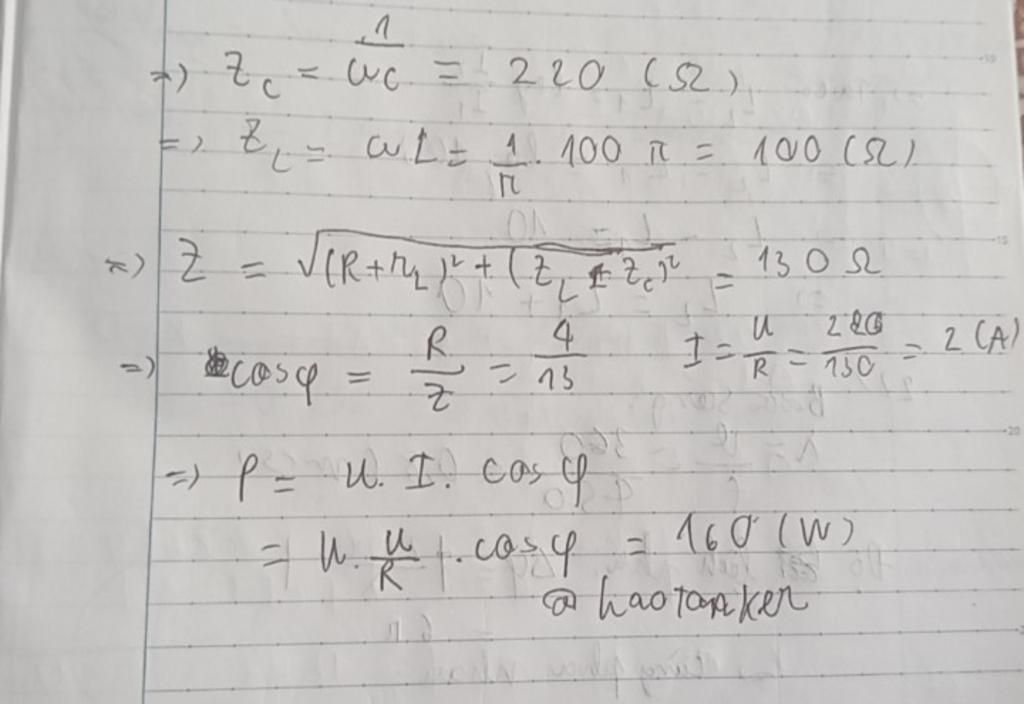 => Z_C = 1/ωC = 220 (Ω)
=> Z_L = ωL = 1/π . 100 π = 100 (Ω)
=> Z = √(R+r_L)² + (Z_L - Z_C)² = 130 Ω
=> cosφ = R/Z = 4/13 I = U/R = 220/130 = 2 (A)
=> P = U. I. cosφ
= U. U/R . cosφ = 160 (W)
@ haotanker